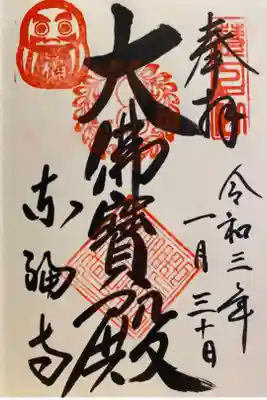 奉拝
大佛寶殿
令和三年
一月三十日
寺
福